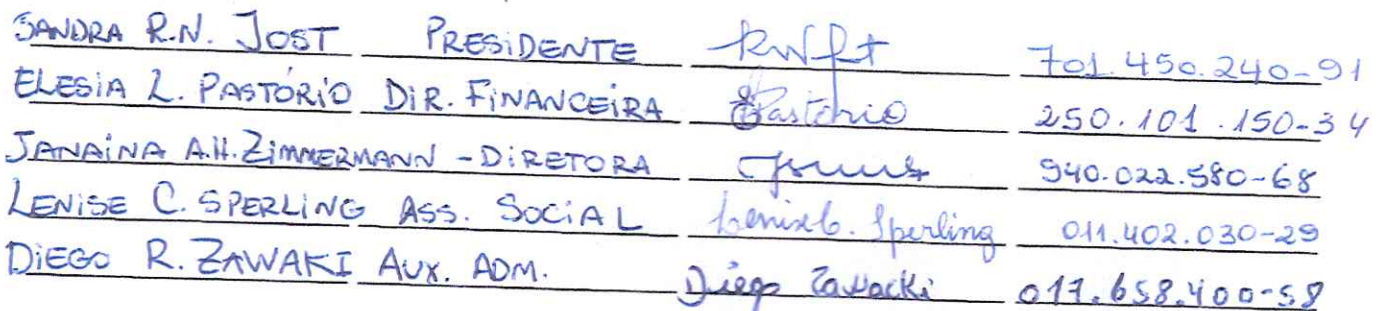 SANDRA R.N. JOST PRESIDENTE 701.450.240-91
ELESIA L. PASTÓRIO DIR. FINANCEIRA Pastório 250.101.150-34
JANAINA A.H. ZIMMERMANN - DIRETORA 940.022.580-68
LENISE C. SPERLING ASS. SOCIAL Lenise C. Sperling 011.402.030-29
DIEGO R. ZAWAKI AUX. ADM. Diego Zawacki 017.658.400-58